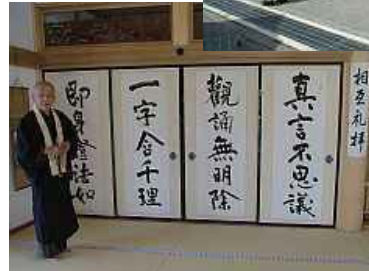 相互礼拝
真言不思議
觀誦無明除
一字含千理
即身證法如